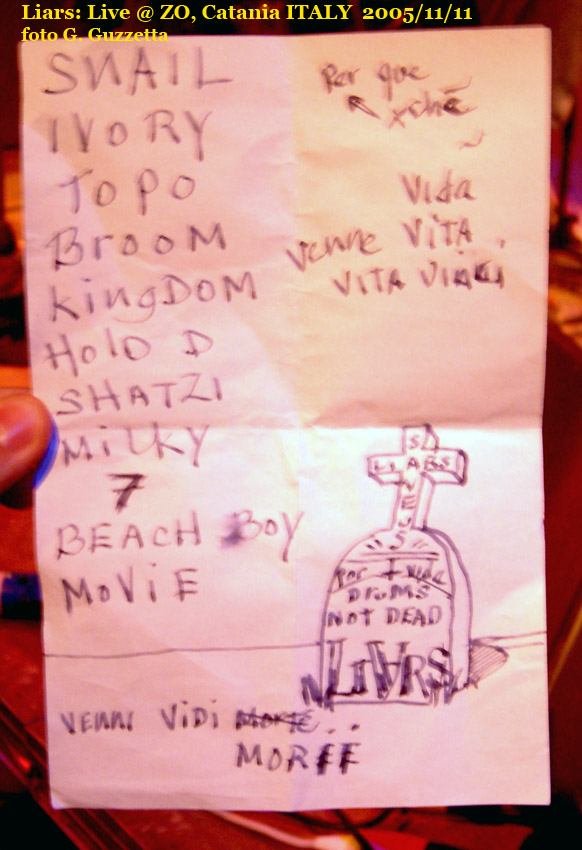 Liars: Live @ ZO, Catania ITALY 2005/11/11
foto G. Guzzetta
SNAIL
IVORY
TOPO
BrooM
kingDOM
HOlD D
SHATZI
MiLKY
7
BEACH BOY
MOViE
Per que
xchè
Vida
venne ViTA
VITA
LIARS
DrUMS
NOT DEAD
LIARS
VENNI ViDi MORTE..
MORTE